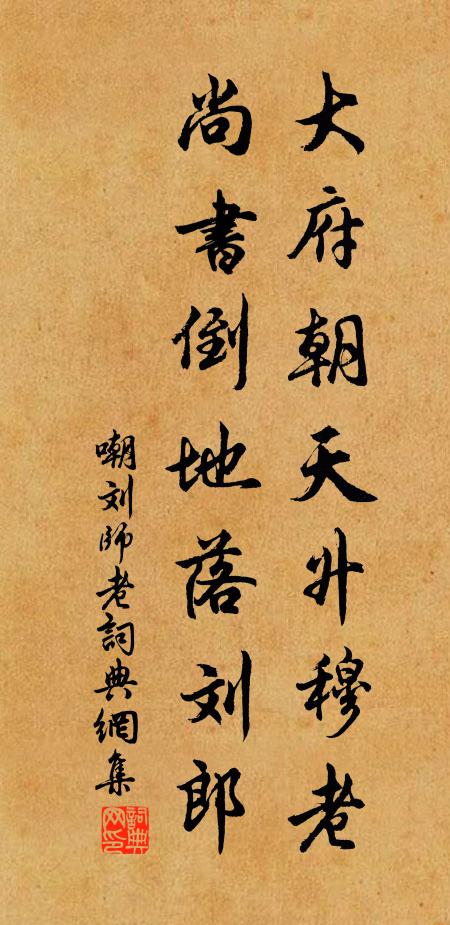 大府朝天升穆老
尚書倒地落刘郎
嘲刘師老詞典網集
詞典网印